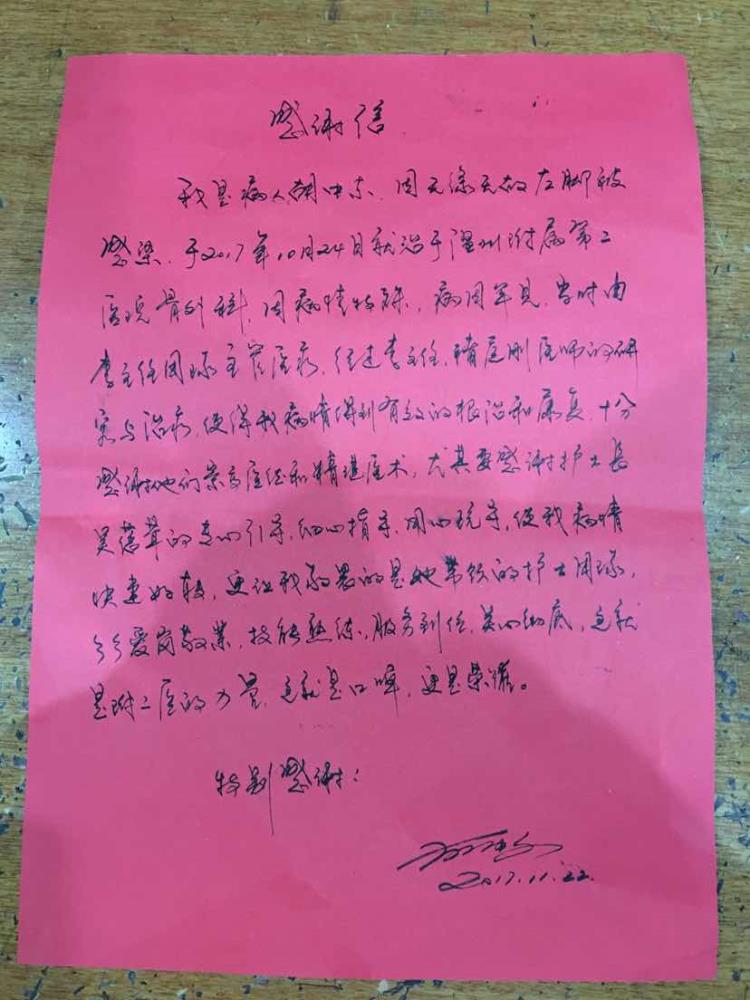 感谢信
我是病人胡中东，因无缘无故左脚被
感染，于2017年10月24日就治于温州附属第二
医院骨外科，因病情特殊，病因罕见，当时由
李主任团队主管医疗，经过李主任、刚医师的研
究与治疗，使得我病情得到有效的根治和康复，十分
感谢他们崇高医德和精湛医术，尤其要感谢护士长
吴的专心引导，细心指导，用心玩导，使我病情
快速好转，更让我敬畏的是她带领的护士团队，
个个爱岗敬业，技能熟练，服务到位，美心彻底，这就
是附二医的力量，这就是口啤，更是荣耀。
特别感谢！
2017.11.22.